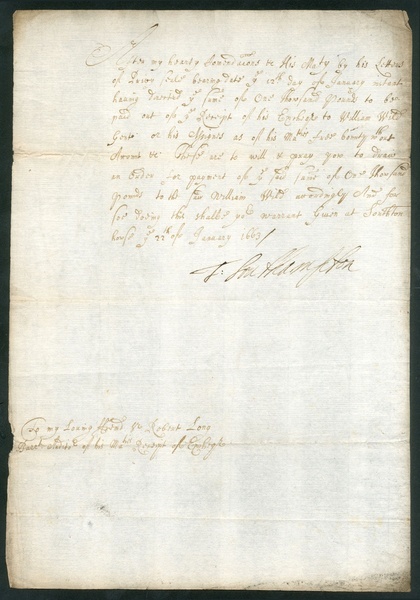 After my hearty Comendacons &c His Maty by his Letters
of Privy Seale bearing date ye 12th day of January instant
having directed ye sume of One Thousand Pounds to be
paid out of ye Receipt of his Excheqr to William Wild
Esqre or his Assignes as of his Mats free bounty wthout
Accompt &c These are to will & pray you to draw
an Order for payment of ye said sume of One Thousand
Pounds to the said William Wild accordingly And for
soe doeing this shalbe yor warrant Given at Southton
house ye 22th of January 1663/
T: Southampton
To my Loving friend Sr Robert Long
Baret Auditor of his Mats Receipt of Excheqr